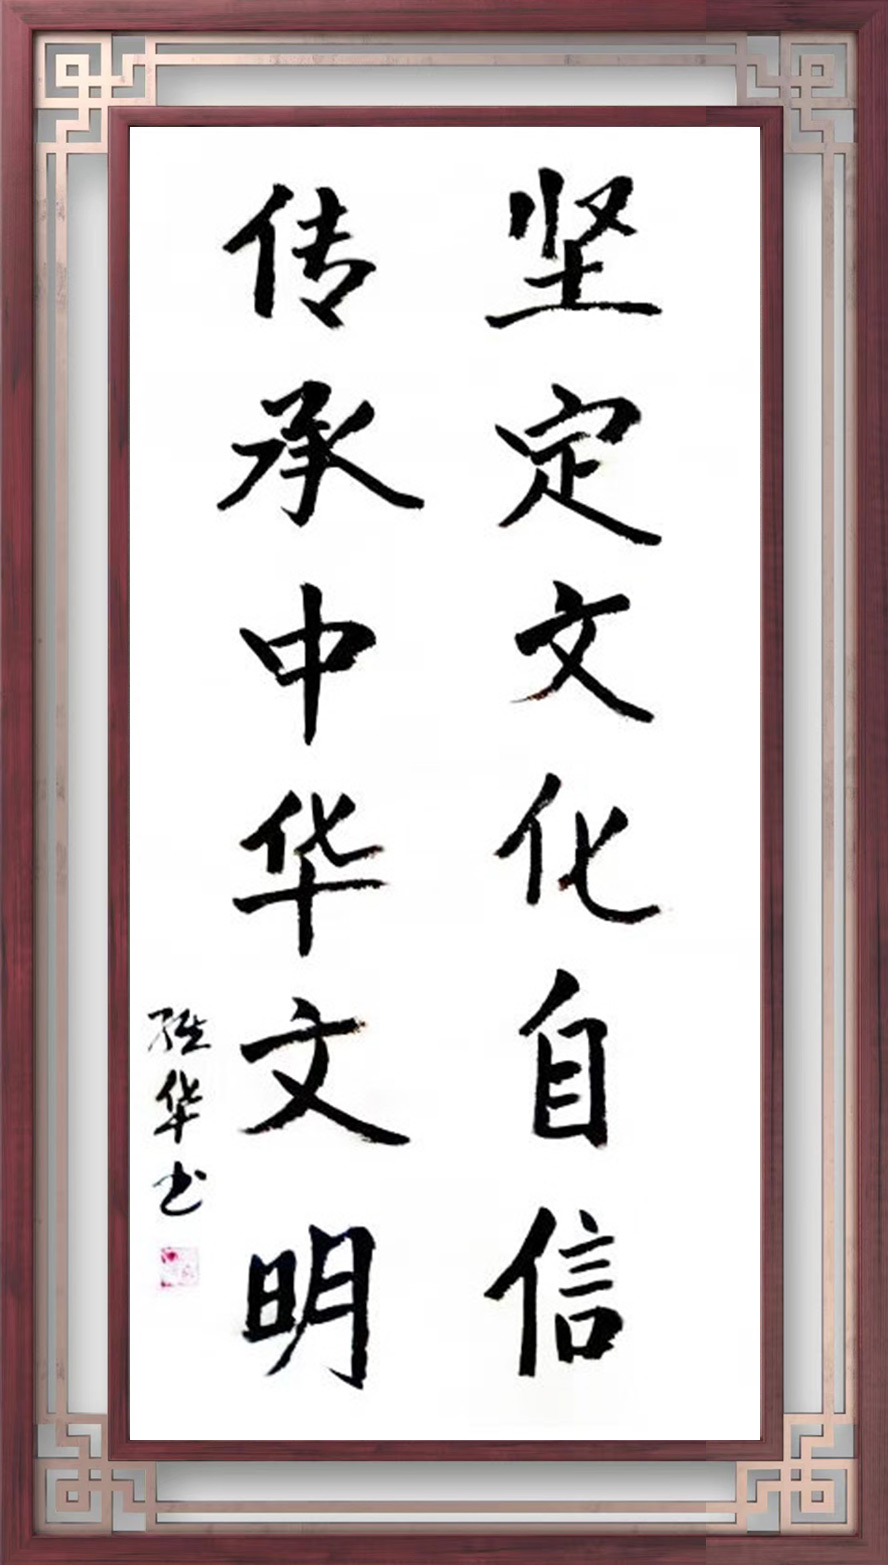 坚定文化自信
传承中华文明
华书